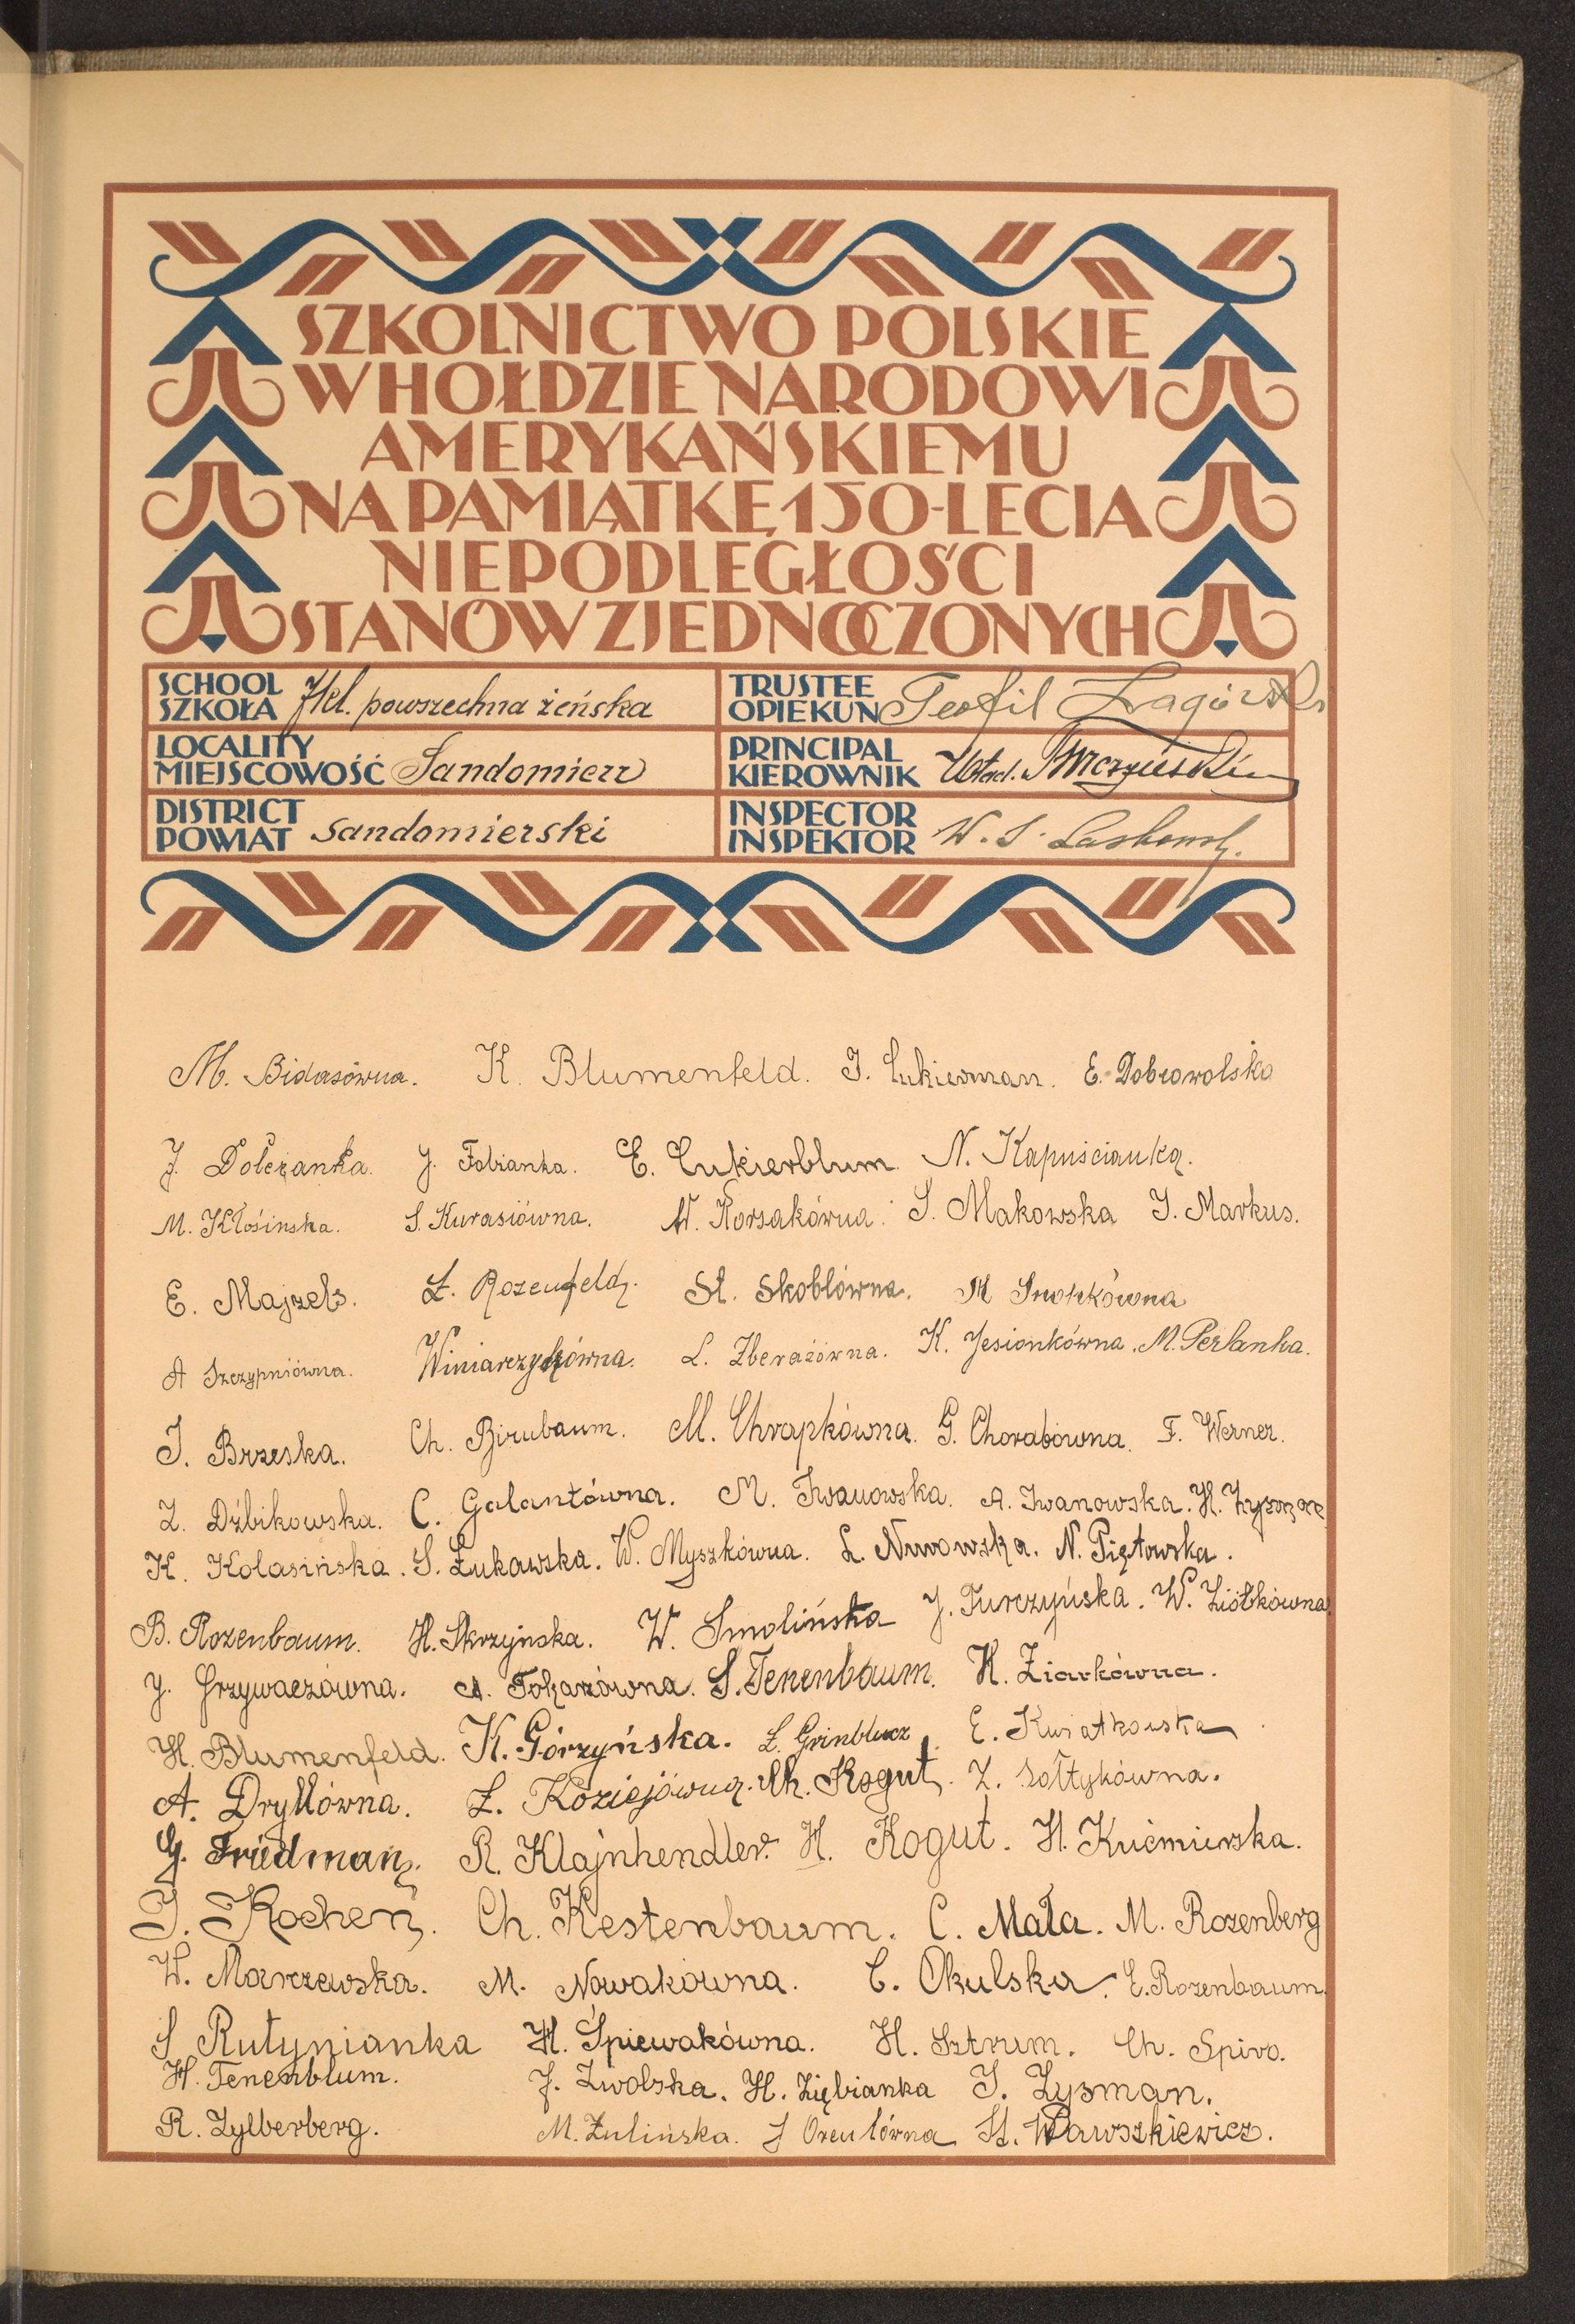 SZKOLNICTWO POLSKIE
W HOŁDZIE NARODOWI
AMERYKAŃSKIEMU
NA PAMIĄTKĘ 150-LECIA
NIEPODLEGŁOŚCI
STANÓW ZJEDNOCZONYCH
SCHOOL
SZKOŁA 7kl. powszechna żeńska
TRUSTEE
OPIEKUN Teofil Zagórski
LOCALITY
MIEJSCOWOŚĆ Sandomierz
PRINCIPAL
KIEROWNIK Wład.
DISTRICT
POWIAT Sandomierski
INSPECTOR
INSPEKTOR W. S. Laskowsk.
M. Bidasówna. K. Blumenfeld. I. Cukierman. E. Dobrowolska
J. Doleżanka. J. Fabianka. E. Cukierblum. N. Kapuścianka.
M. Kłosińska. S. Kurasiówna. W. Korsakówna. S. Makowska I. Markus.
E. Majzels. Ł. Rozenfeld. St. Skoblówna. M Snopkówna
A Szczypniówna. Winiarczykówna. L. Zberażówna. K. Jesionkówna. M. Perlanka.
I. Brzeska. Ch. Birnbaum. M. Chrapkówna. G. Chorabówna. F. Werner.
Z. Dźbikowska. C. Galantówna. M. Iwanowska. A. Iwanowska. H.
K. Kolasińska. S. Łukawska. W. Myszkówna. L. N. Piętowska.
B. Rozenbaum. H. Skrzyńska. W. Smolińska J. Turczyńska. W. Ziółkówna.
J. Grzywaczówna. A. Tokarzówna. S. Tenenbaum. H. Ziarkówna.
H. Blumenfeld. K. Górzyńska. Ł. E. Kwiatkowska
A. Dryllówna. Z. Koziejówna. Ch. Kogut. Z. Sołtykówna.
G. Friedman. R. Klajnhendler. H. Kogut. H. Kućmierska.
I. Kochen. Ch. Kestenbaum. C. Mała. M. Rozenberg
W. Marczewska. M. Nowakówna. C. Okulska. E. Rozenbaum.
S Rutynianka H. Śpiewakówna. H. Sztrum. Ch. Spiro.
H. Tenenblum. J. Zwolska. H. Ziębianka I. Zysman.
R. Zylberberg. M. Żulińska. J Orculówna St. Wawszkiewicz.